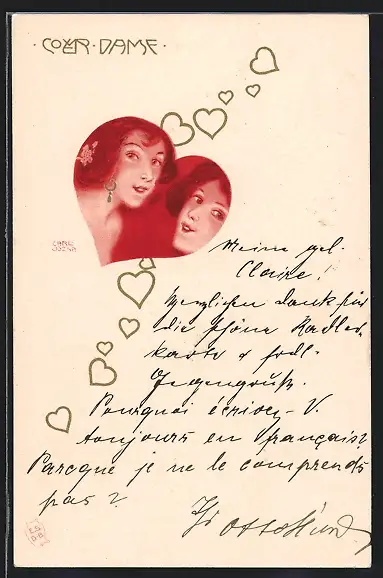 · COEUR · DAME ·
Meine gel.
Claire!
Herzlichen Dank für
die schöne Radler-
karte & frdl.
Gegengruß.
Pourquoi écrivez-V.
toujours en français?
Parceque je ne le comprends
pas?
Otto